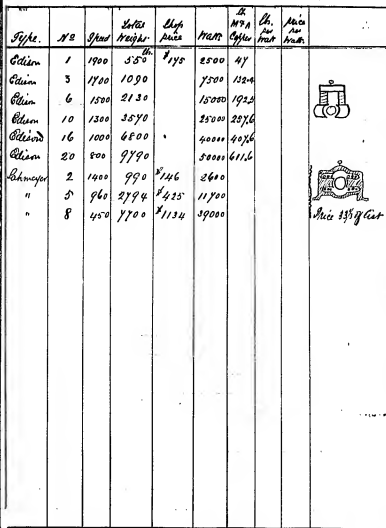 Type. No Speed Total Weight Shop price Watts lb. M & A Copper lbs. per watt price per watt.
lb.
Edison 1 1900 550 $175 2500 47
Edison 3 1700 1090 7500 132.4
Edison 6 1500 2130 15000 192.5
Edison 10 1300 3570 25000 257.6
Edison 16 1000 6800 40000 407.6
Edison 20 800 9790 50000 611.6
Lahmeyer 2 1400 990 $146 2600
" 5 960 2794 $425 11700
" 8 450 7700 $1134 39000 Price 33% of List